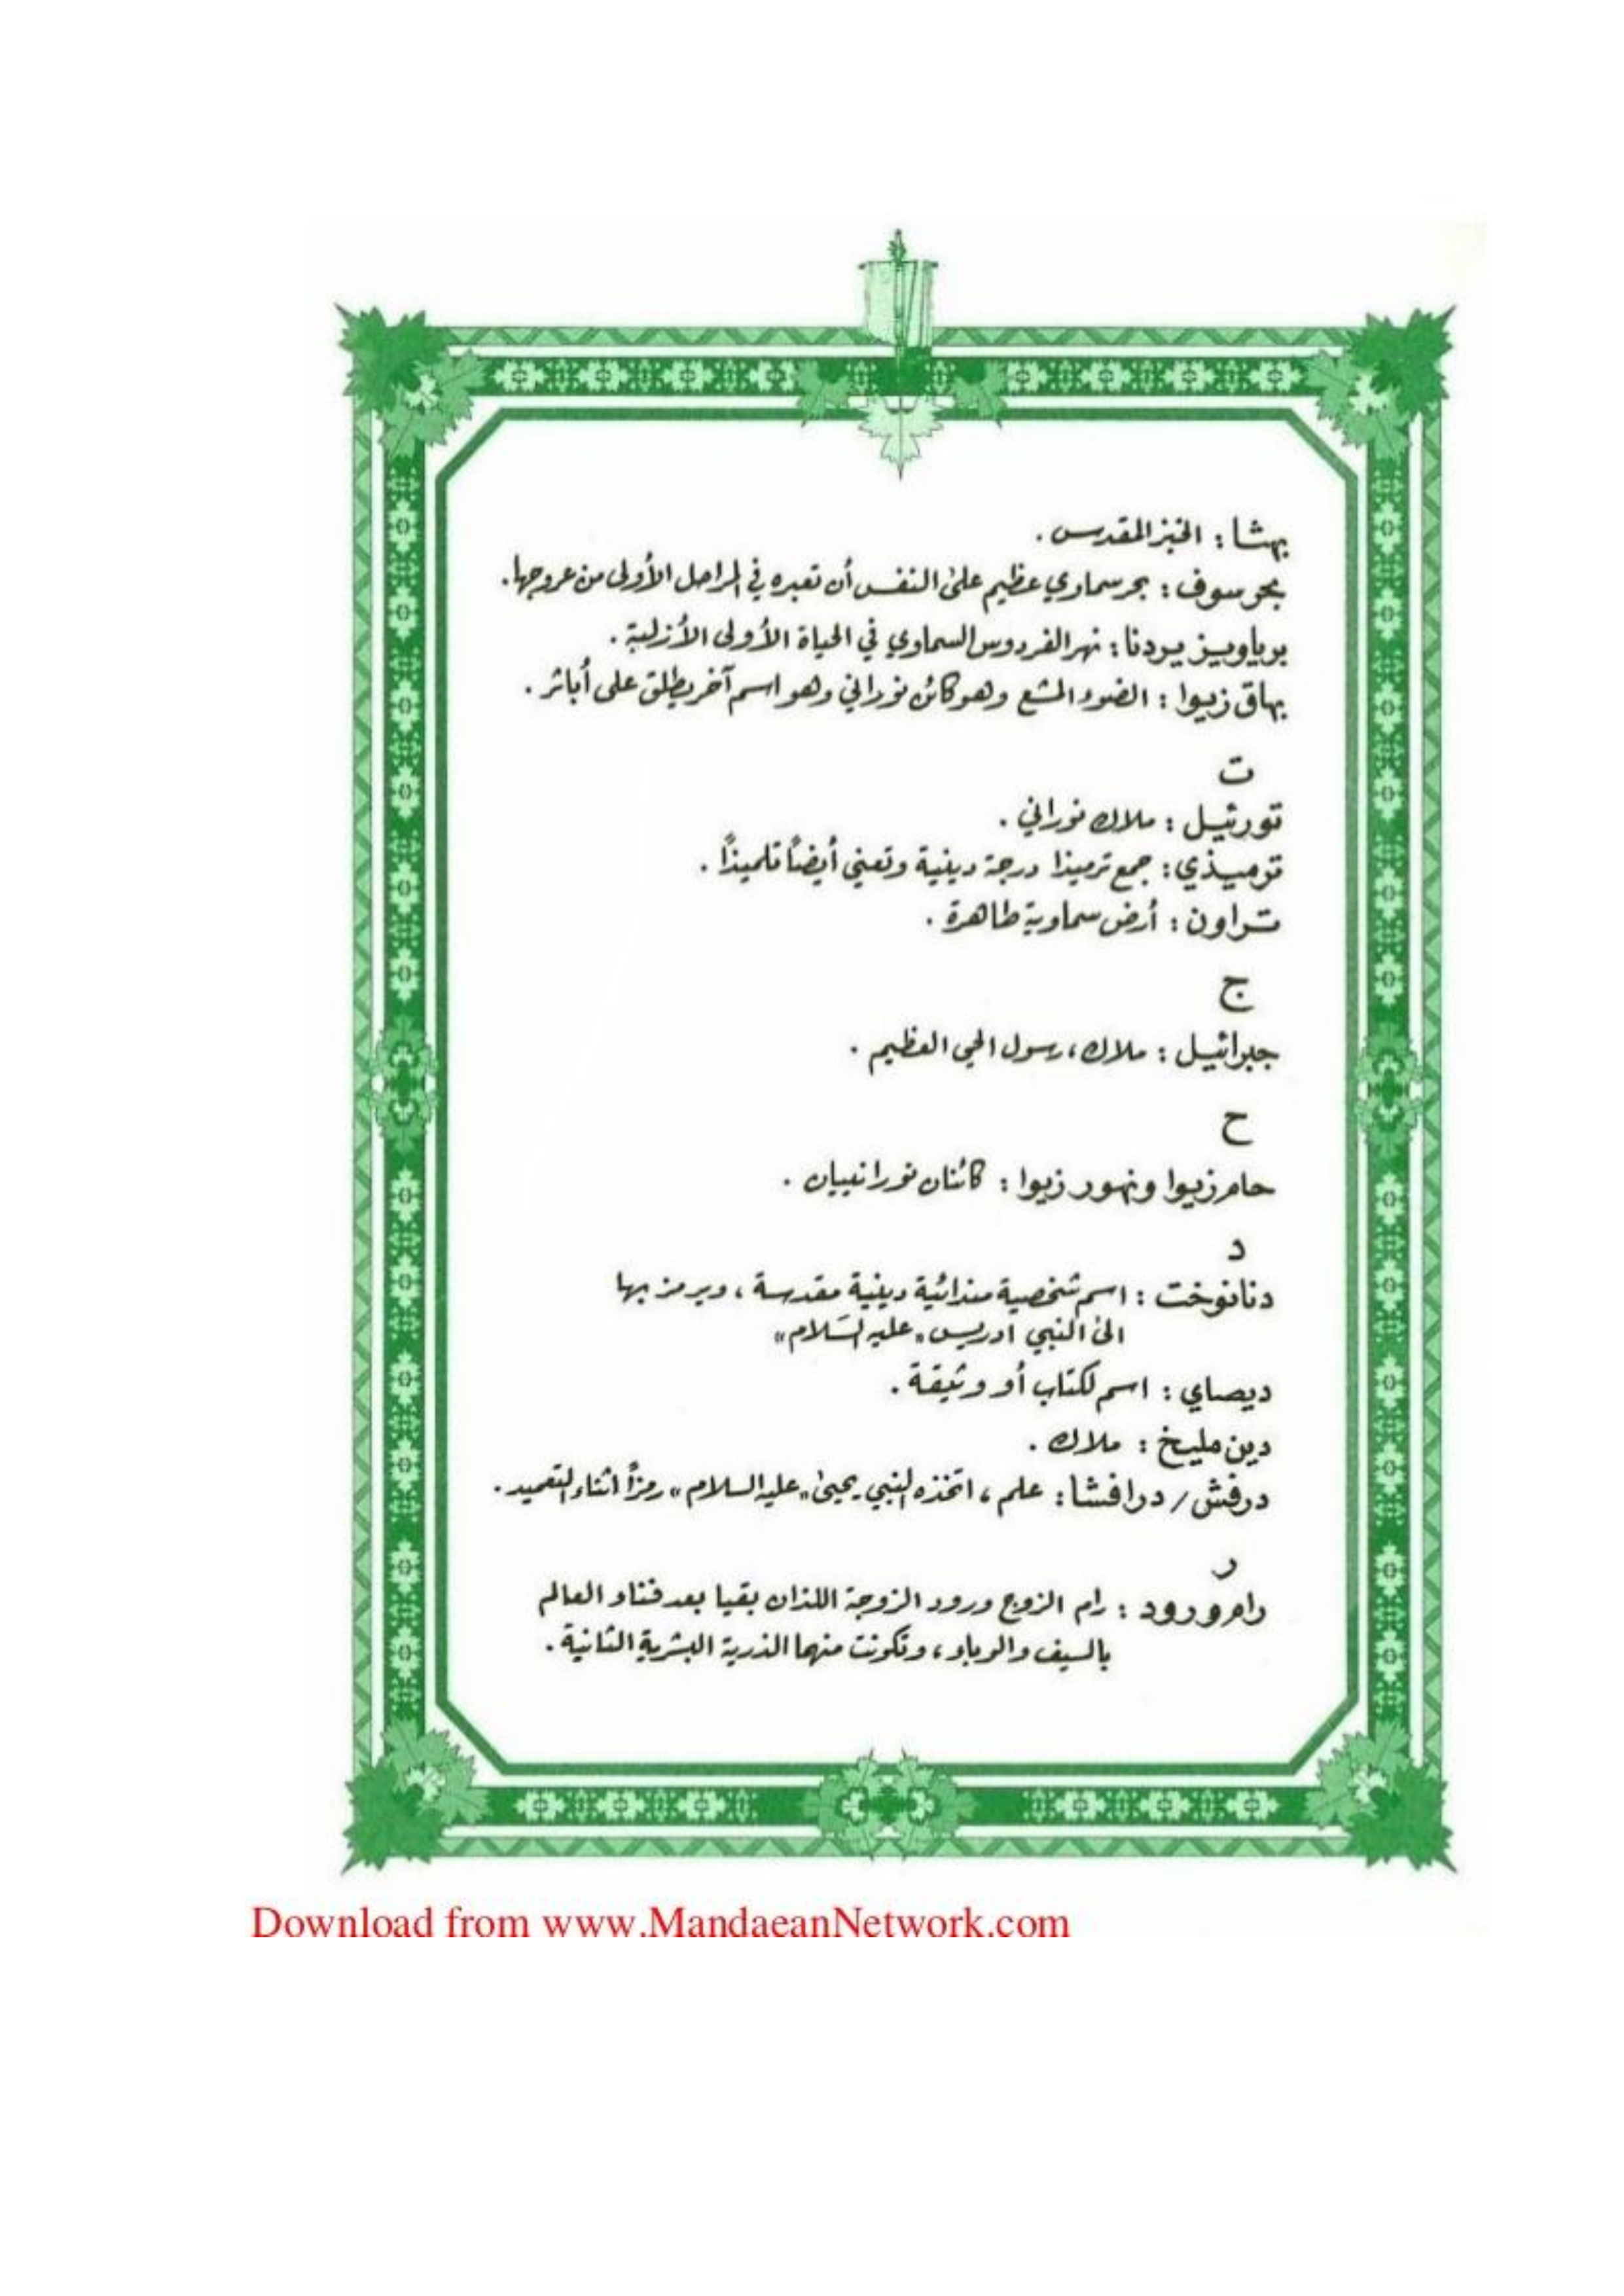 بهثا : الخبز المقدس .
بحر سوف : بحر سماوي عظيم على النفس أن تعبره في المراحل الأولى من عروجها .
بوياويز يردنا : نهر الفردوس السماوي في الحياة الأولى الأزلية .
بهاق زيوا : الضوء المشع وهو كائن نوراني وهو اسم آخر يطلق على أباثر .
ت
تورئيل : ملاك نوراني .
ترميذي : جمع ترميذا درجة دينية وتعني أيضاً تلميذاً .
تراون : أرض سماوية طاهرة .
ج
جبرائيل : ملاك ، رسول الحي العظيم .
ح
حام زيوا ونهور زيوا : كائنان نورانييان .
د
دنانوخت : اسم شخصية مندائية دينية مقدسة ، ويرمز بها
الى النبي ادريس «عليه السَلام»
ديصاي : اسم لكتاب أو وثيقة .
دين مليخ : ملاك .
درفش / درافشا : علم ، اتخذه النبي يحيى «عليه السلام» رمزاً اثناء التعميد .
ر
رام ورود : رام الزوج ورود الزوجة اللذان بقيا بعد فناء العالم
بالسيف والوباء ، وتكونت منهما الذرية البشرية الثانية .
Download from www.MandaeanNetwork.com